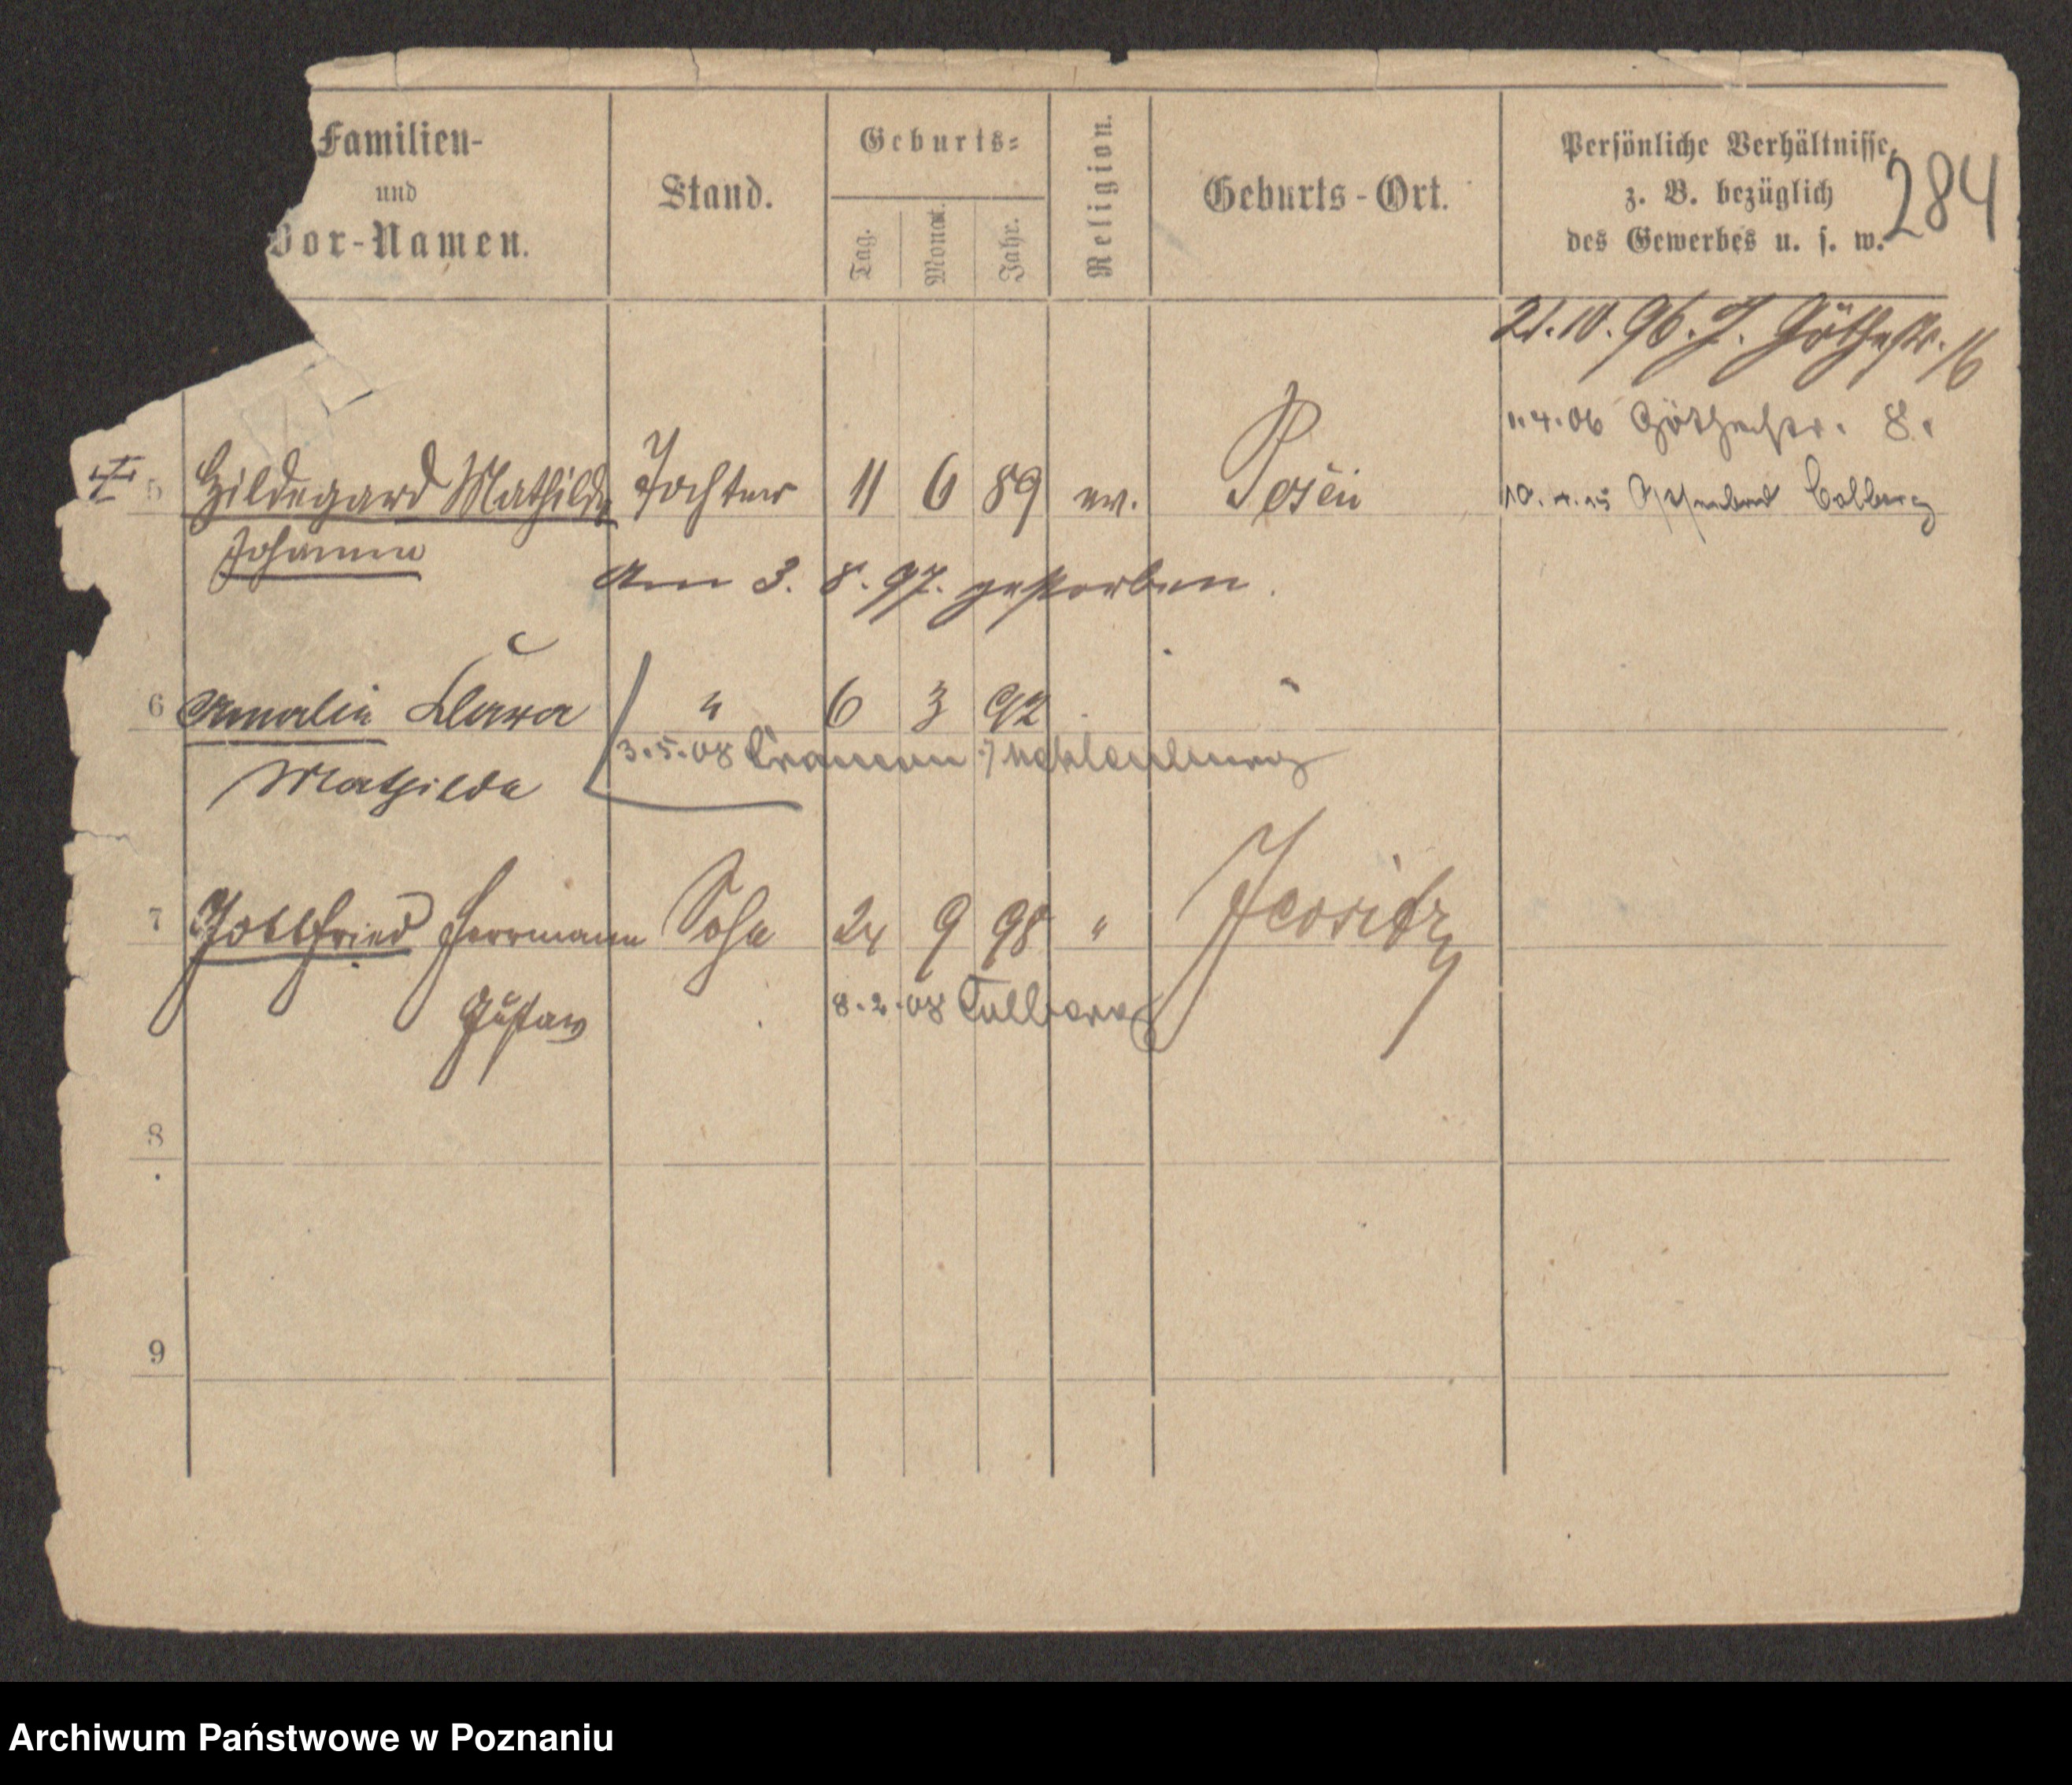 Familien-
und
Vor-Namen.
Stand.
Geburts-
Tag.
Monat.
Jahr.
Religion.
Geburts-Ort.
Persönliche Verhältnisse,
z. B. bezüglich
des Gewerbes u. s. w.
284
21.10.96. J. Götherstr. 16
1.4.06 Göthestr. 8.
5 Hildegard Mathilde Tochter 11 6 89 ev. Posen
10.4.15 Colberg
Johanne
Am 3. 8. 97. gestorben.
6 Amalie Clara " 6 3 92
3.5.08 Mecklenburg
Mathilde
7 Gottfried Herrmann Sohn 24 9 98 " Jersitz
Gustav
8.2.08 Colberg
8
9
Archiwum Państwowe w Poznaniu